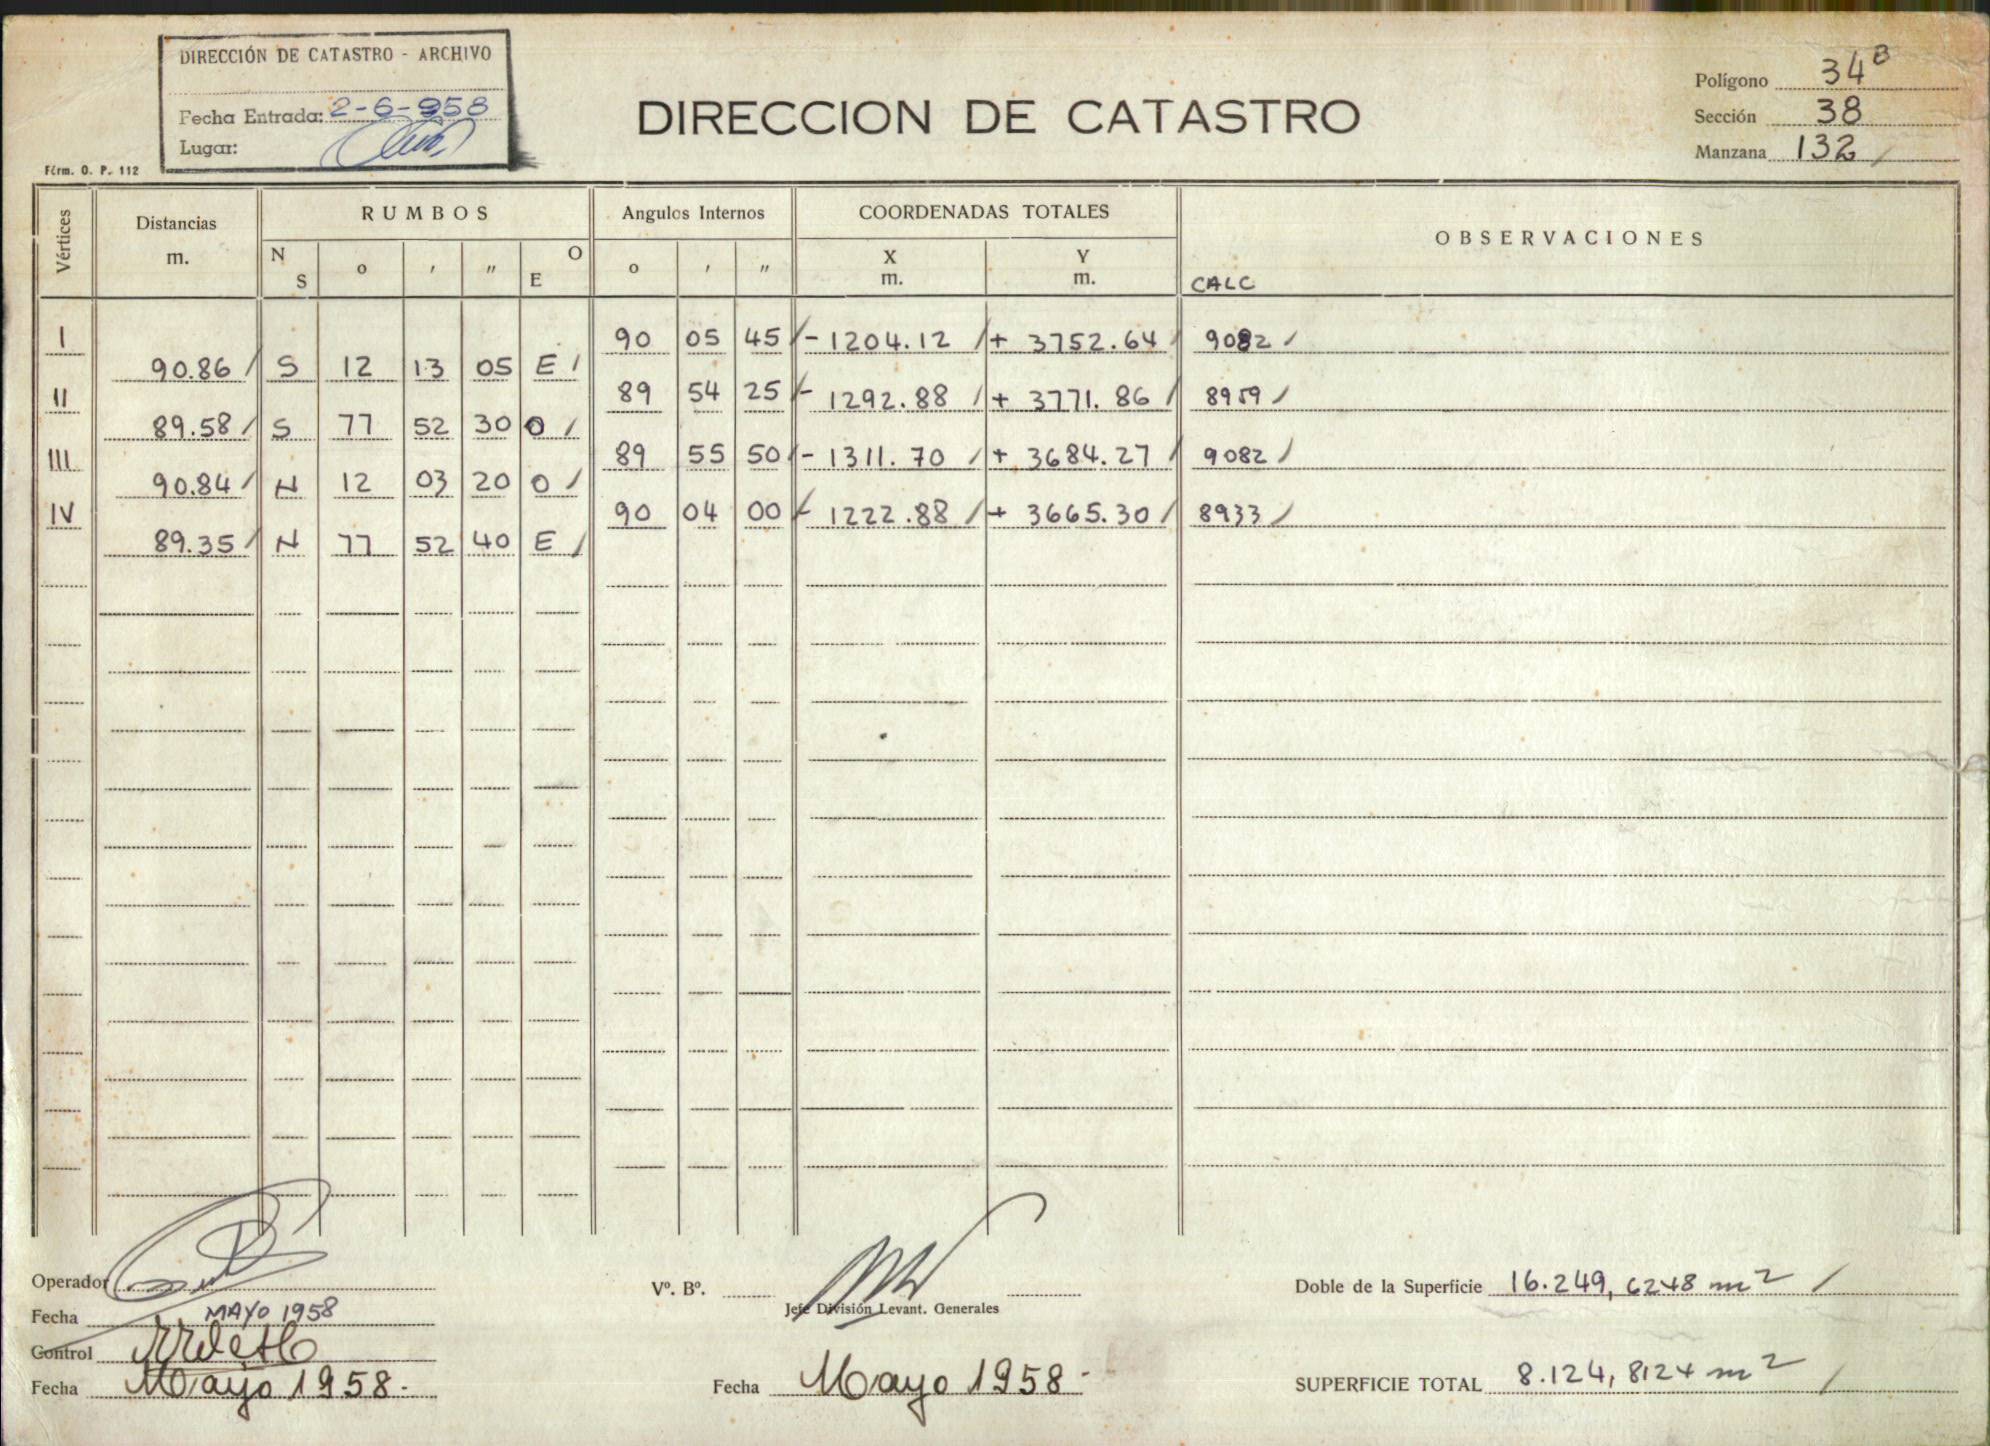 DIRECCIÓN DE CATASTRO - ARCHIVO
Fecha Entrada: 2-6-958
Lugar:
Fórm. O. P. 112
DIRECCION DE CATASTRO
Polígono 34B
Sección 38
Manzana 132 /
Vértices Distancias m. RUMBOS Angulos Internos COORDENADAS TOTALES OBSERVACIONES
N S o ' " O E o ' " X m. Y m. CALC
I 90 05 45 / - 1204.12 / + 3752.64 / 9082 /
90.86 / S 12 13 05 E /
II 89 54 25 / - 1292.88 / + 3771.86 / 8959 /
89.58 / S 77 52 30 O /
III 89 55 50 / - 1311.70 / + 3684.27 / 9082 /
90.84 / N 12 03 20 O /
IV 90 04 00 / - 1222.88 / + 3665.30 / 8933 /
89.35 / N 77 52 40 E /
Operador
Fecha MAYO 1958
Control
Fecha Mayo 1958.
Vº. Bº.
Jefe División Levant. Generales
Fecha Mayo 1958-
Doble de la Superficie 16.249,6248 m2 /
SUPERFICIE TOTAL 8.124,8124 m2 /